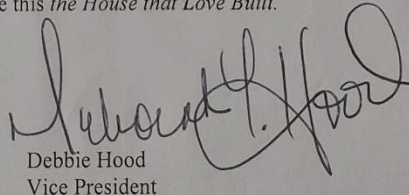 this the House that Love Built.
Deborah Y. Hood
Debbie Hood
Vice President